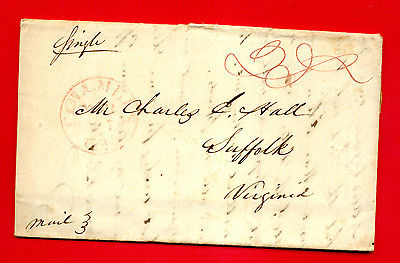 Single
Mr Charles E. Hall
Suffolk
Virginia
Mail